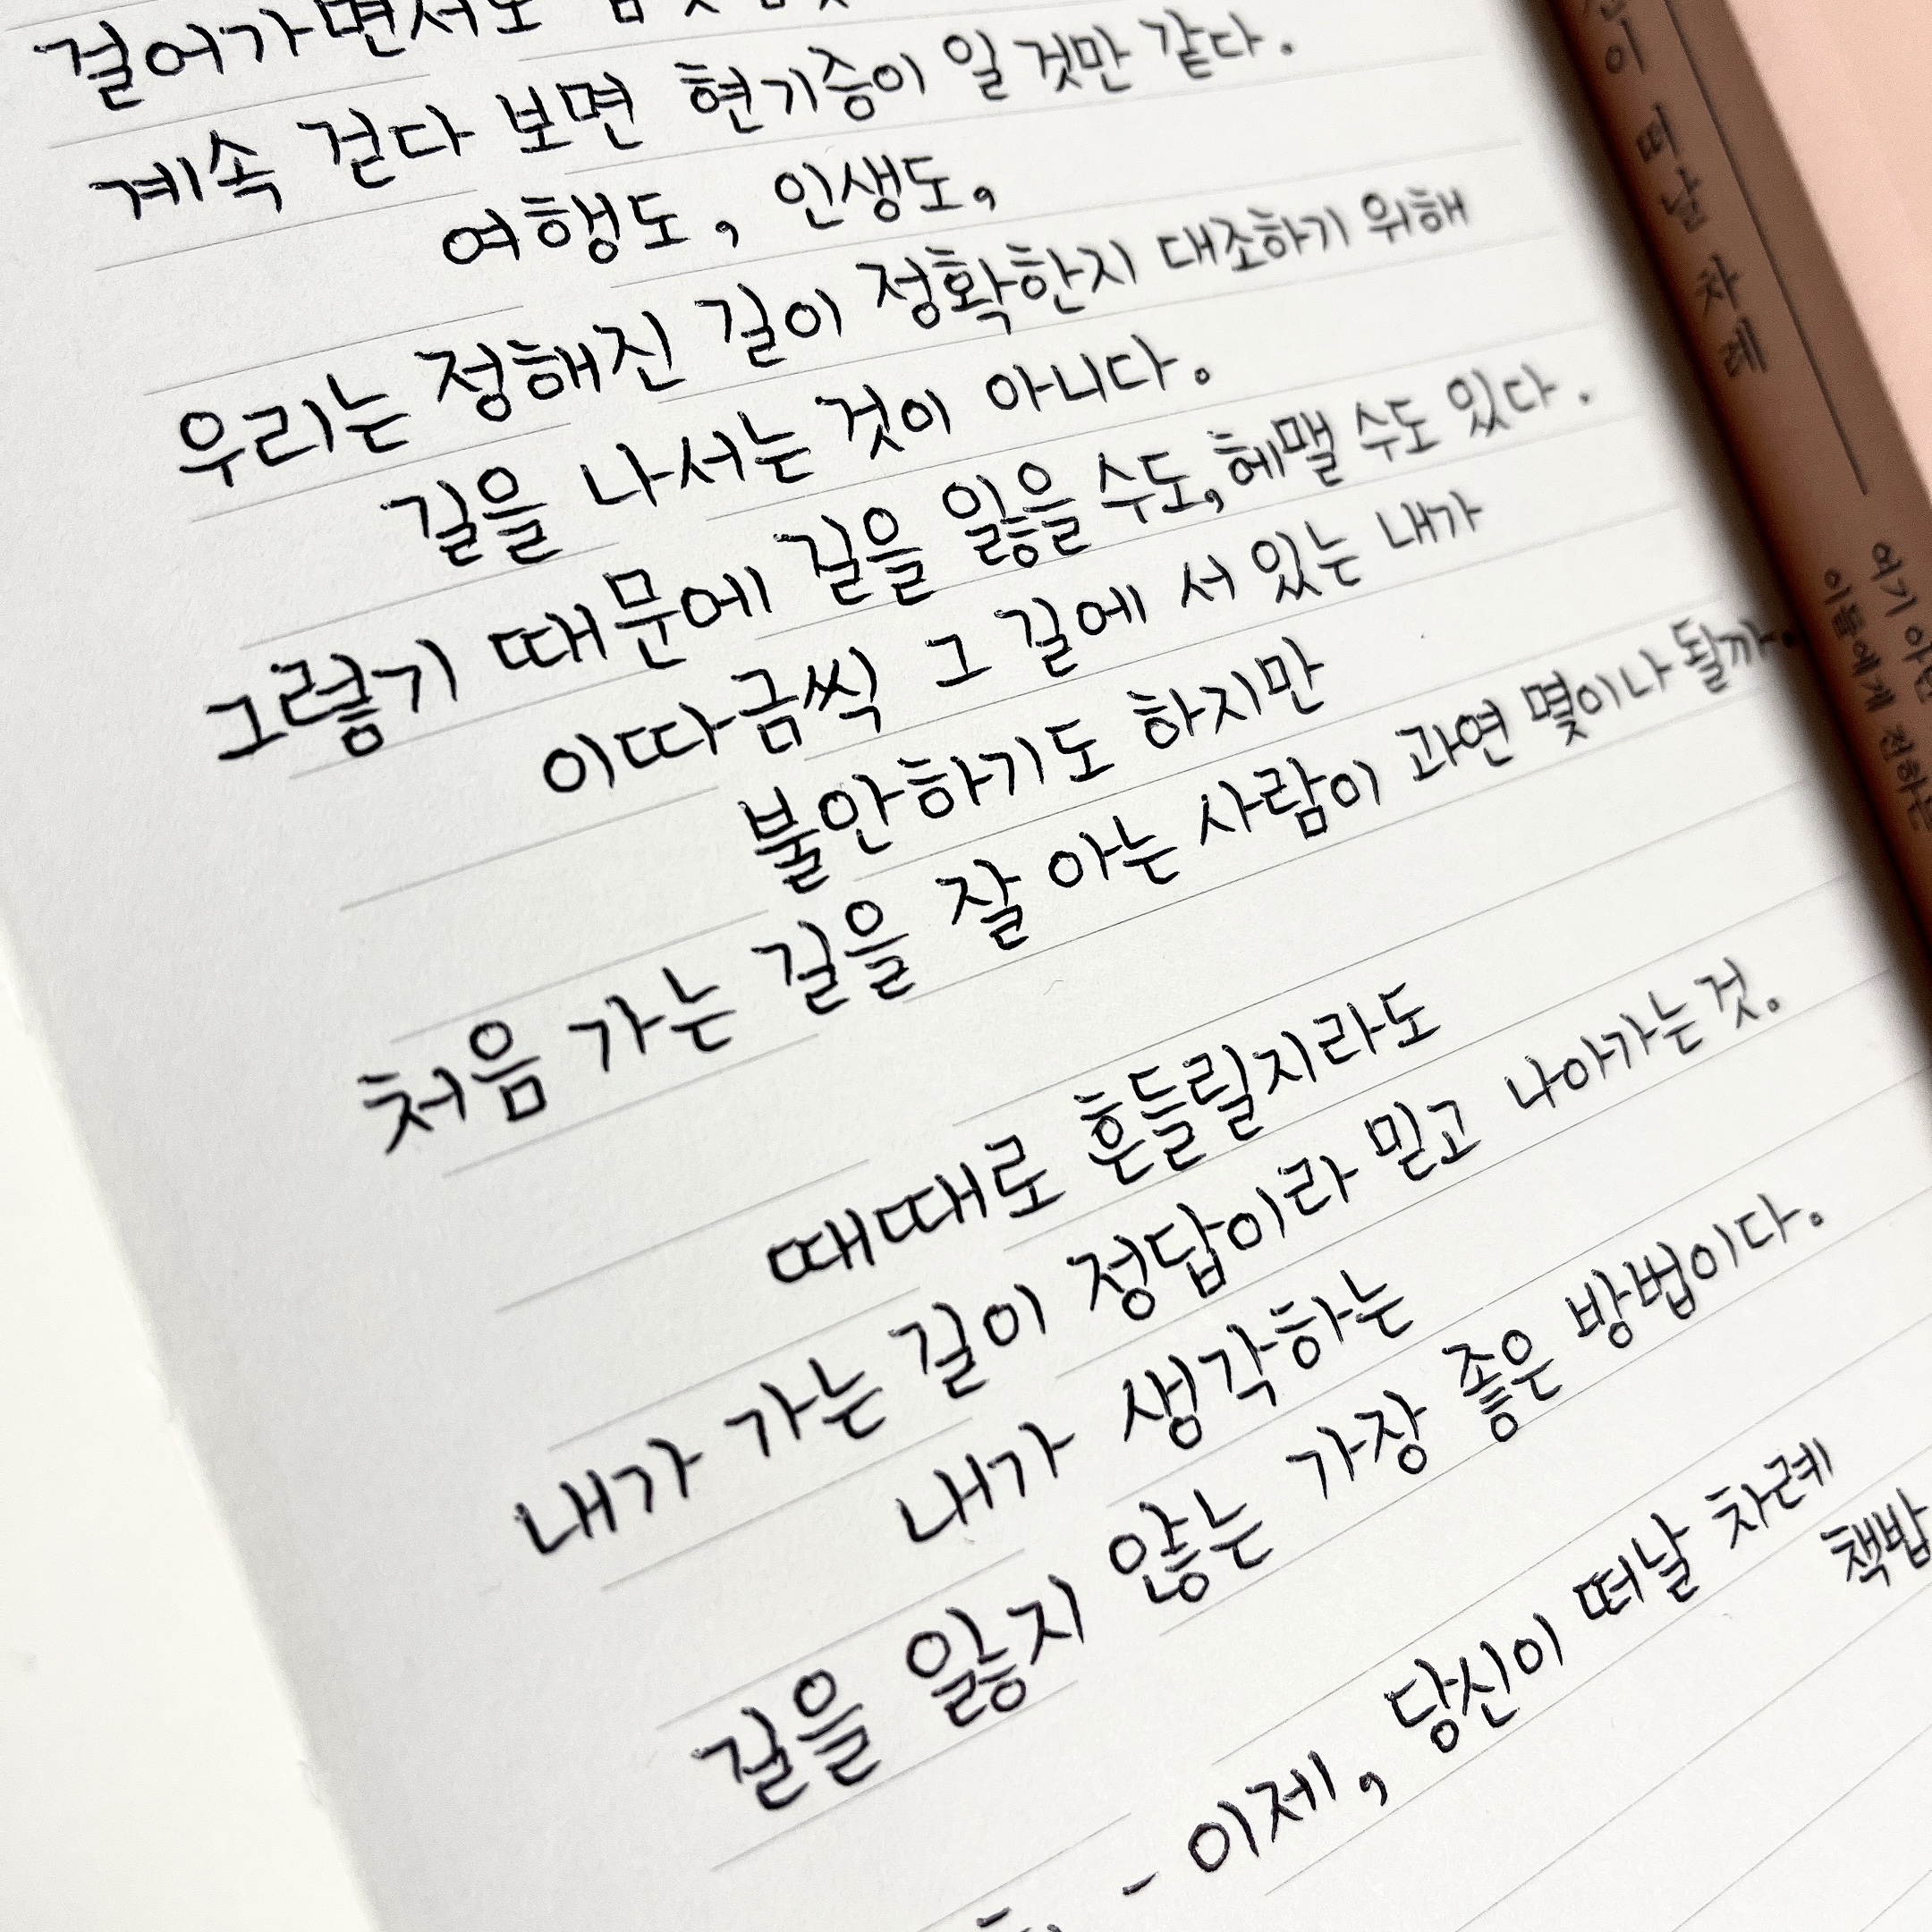 걸어가면서도
계속 걷다 보면 현기증이 일 것만 같다.
여행도, 인생도,
우리는 정해진 길이 정확한지 대조하기 위해
길을 나서는 것이 아니다.
그렇기 때문에 길을 잃을 수도, 헤맬 수도 있다.
이따금씩 그 길에 서 있는 내가
불안하기도 하지만
처음 가는 길을 잘 아는 사람이 과연 몇이나 될까.
때때로 흔들릴지라도
내가 가는 길이 정답이라 믿고 나아가는 것.
내가 생각하는
길을 잃지 않는 가장 좋은 방법이다.
- 이제, 당신이 떠날 차례
책밥
떠날 차례
여기
이들에게 전하는